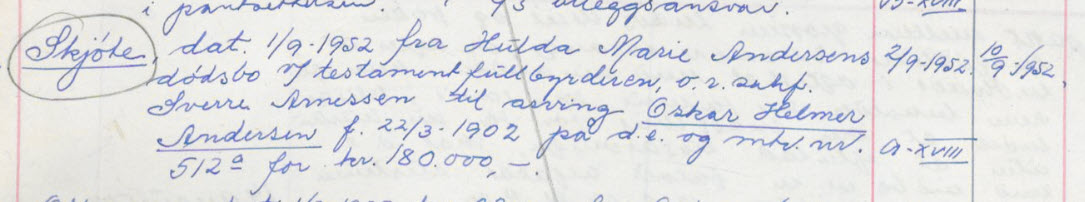 i pantsettelsen. I 43 utleggsansvar. 03-XVIII
Skjøte, dat. 1/9-1952 fra Hulda Marie Andersens 2/9-1952. 10/9-1952
dødsbo v/ testamentfullbyrderen, o.r.sakf.
Sverre Arnessen til arving Oskar Helmer
Andersen f. 22/3-1902 på d.e. og mtr. nr. a-XVIII
512a for kr. 180.000,-